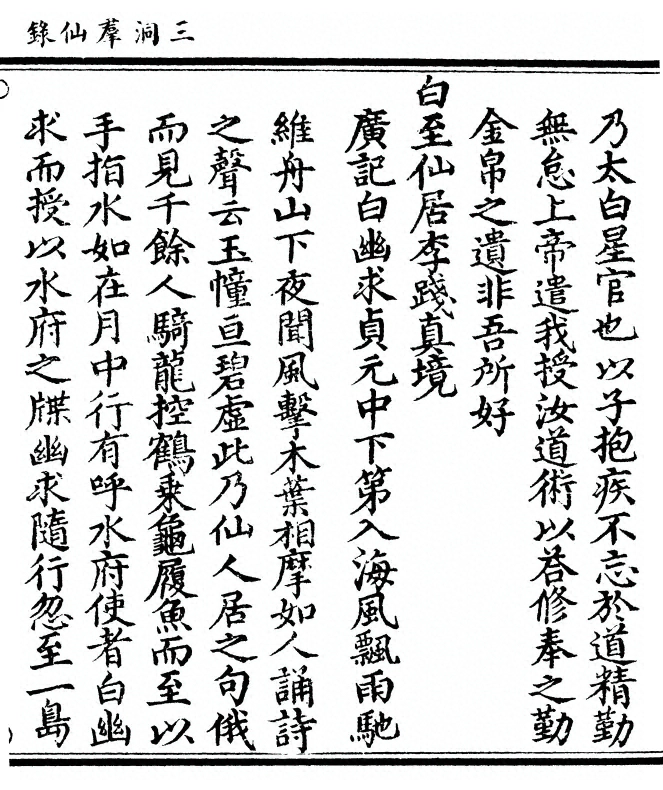 三洞羣仙錄
乃太白星官也以子抱疾不忘於道精勤
無怠上帝遣我授汝道術以荅修奉之勤
金帛之遺非吾所好
白至仙居李踐真境
廣記白幽求貞元中下第入海風飄雨馳
維舟山下夜聞風擊木葉相摩如人誦詩
之聲云玉幢亘碧虛此乃仙人居之句俄
而見千餘人騎龍控鶴乗龜履魚而至以
手指水如在月中行有呼水府使者白幽
求而授以水府之牒幽求隨行忽至一島